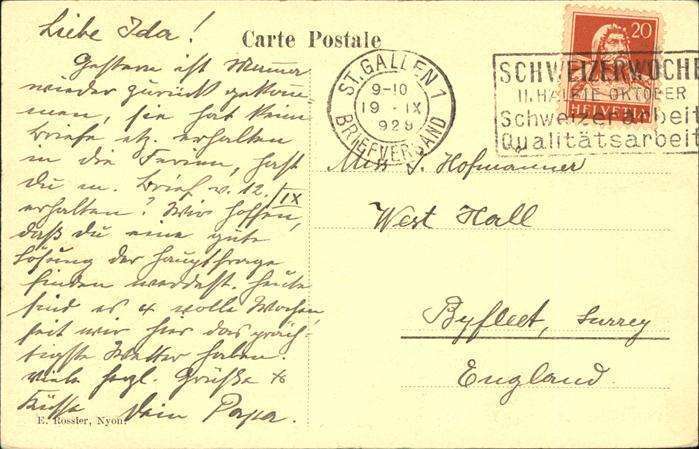 Liebe Ida!
Gestern ist Mama
wieder zurück gekom-
men, sie hat kein
Briefe etz. erhalten
in die Ferien, hast
du m. Brief v. 12./IX
erhalten? Wir hoffen,
daß du eine gute
Lösung der Hauptfrage
finden werdest. Heute
sind es 4 volle Wochen
seit wir hier das präch-
tigste Wetter haben.
Viele hrzl. Grüsse &
Küsse Dein Papa.
E. Rossier, Nyon.
Carte Postale
ST. GALLEN 1
9-10
19 . IX
1929
BRIEFVERSAND
20
HELVETIA
SCHWEIZERWOCHE
II. HÄLFTE OKTOBER
Schweizerarbeit
Qualitätsarbeit
Miss Hofmanner
West Hall
Byfleet, Surrey
England.